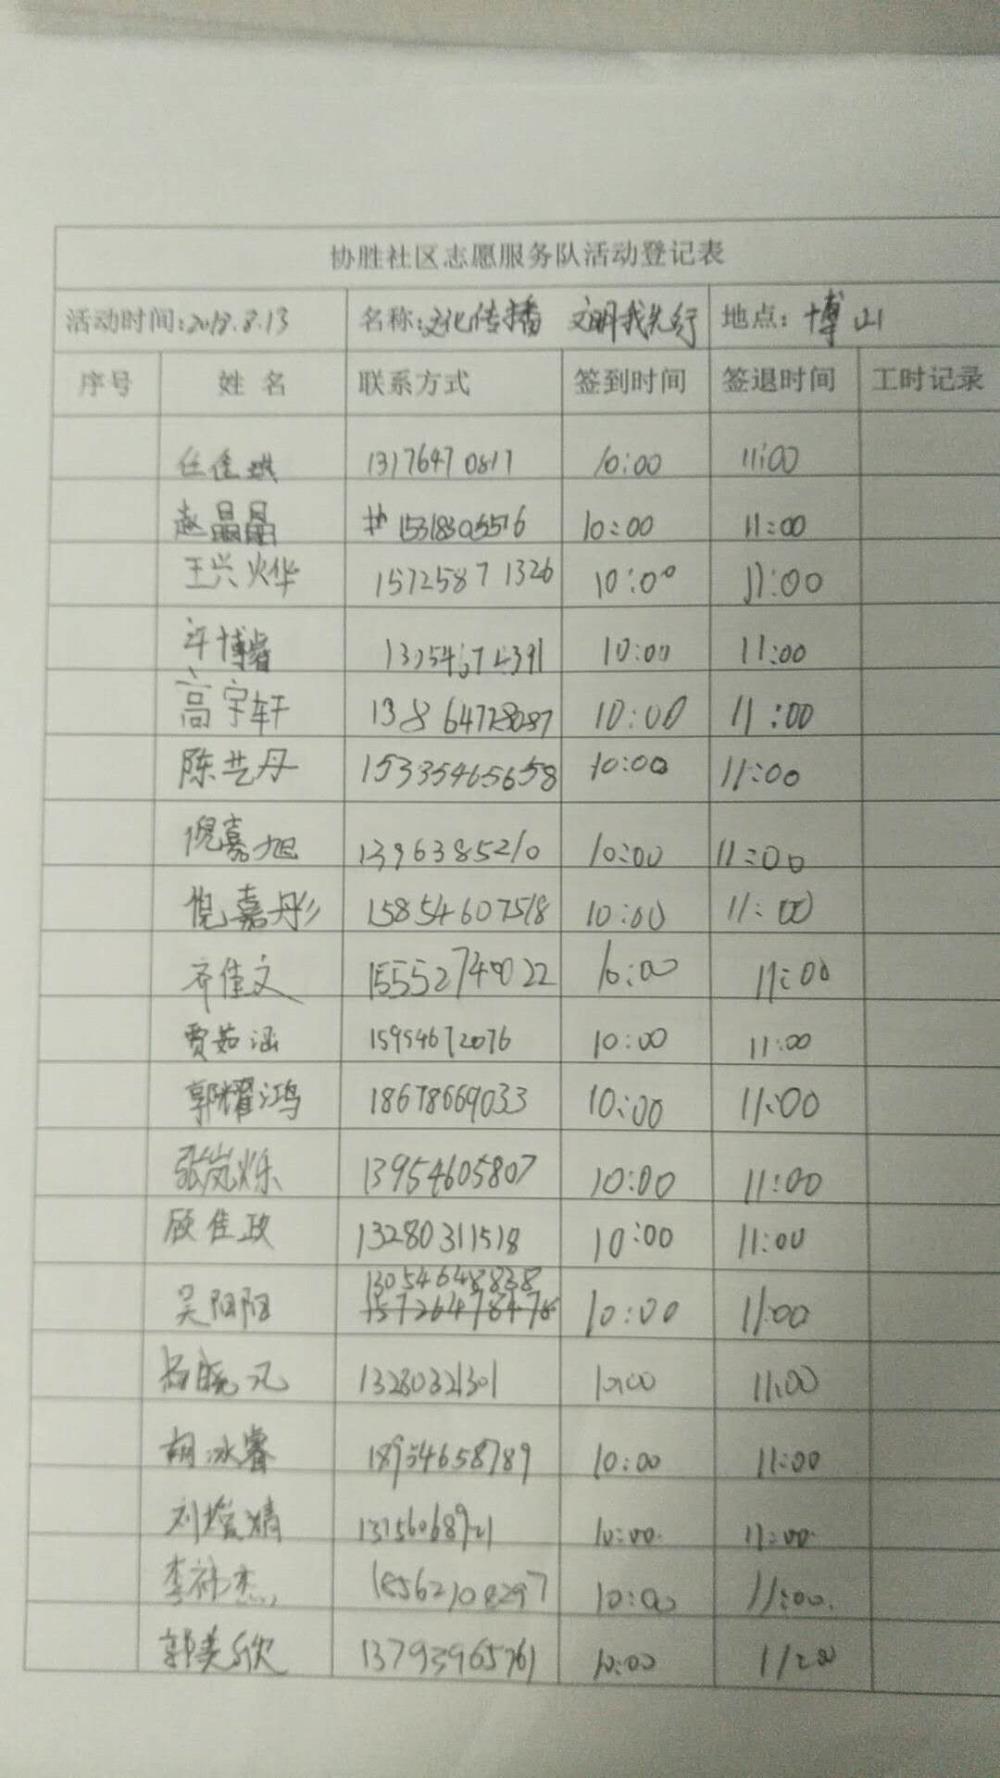 协胜社区志愿服务队活动登记表
活动时间:2018.8.13 名称:文化传播 文明我先行 地点:博山
序号 姓名 联系方式 签到时间 签退时间 工时记录
13176470817 10:00 11:00
赵晶晶 15318305576 10:00 11:00
王兴烨 15725871326 10:00 11:00
许博睿 10:00 11:00
高宇轩 13864728087 10:00 11:00
陈艺丹 15335465658 10:00 11:00
倪嘉旭 1396385210 10:00 11:00
倪嘉彤 15854607518 10:00 11:00
齐佳文 15552740022 10:00 11:00
贾茹涵 15954672076 10:00 11:00
郭耀鸿 18678669033 10:00 11:00
张岚烁 13954605807 10:00 11:00
顾佳政 13280311518 10:00 11:00
吴阳阳 13054648838 10:00 11:00
15726478478
杨晓凡 13280321301 10:00 11:00
胡冰睿 18954658789 10:00 11:00
刘 10:00 11:00
李祎杰 18562108297 10:00 11:00
郭美欣 13793965761 10:00 11:00